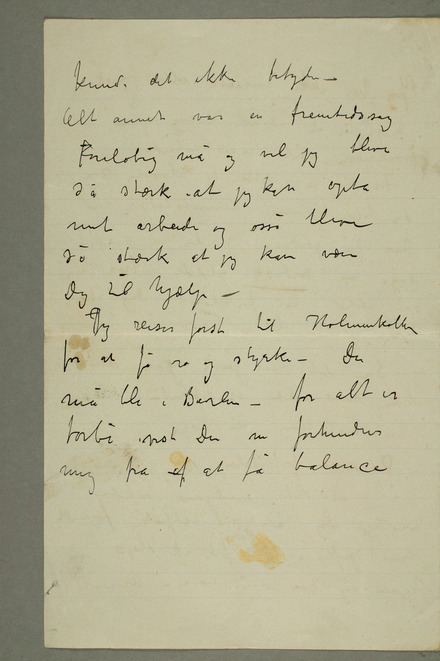 kund. det ikke betyde –
Alt annet var en fremtidssag
Foreløbig må og vil jeg blive
så stærk at jeg kan opta
mit arbeide og også blive
så stærk at jeg kan være
Dig til hjælp –
Jeg reiser først til Holmenkollen
for at få ro og styrke – Du
må bli i Berlin – for alt er
forbi hvis Du nu forhindrer
mig fra at få balance